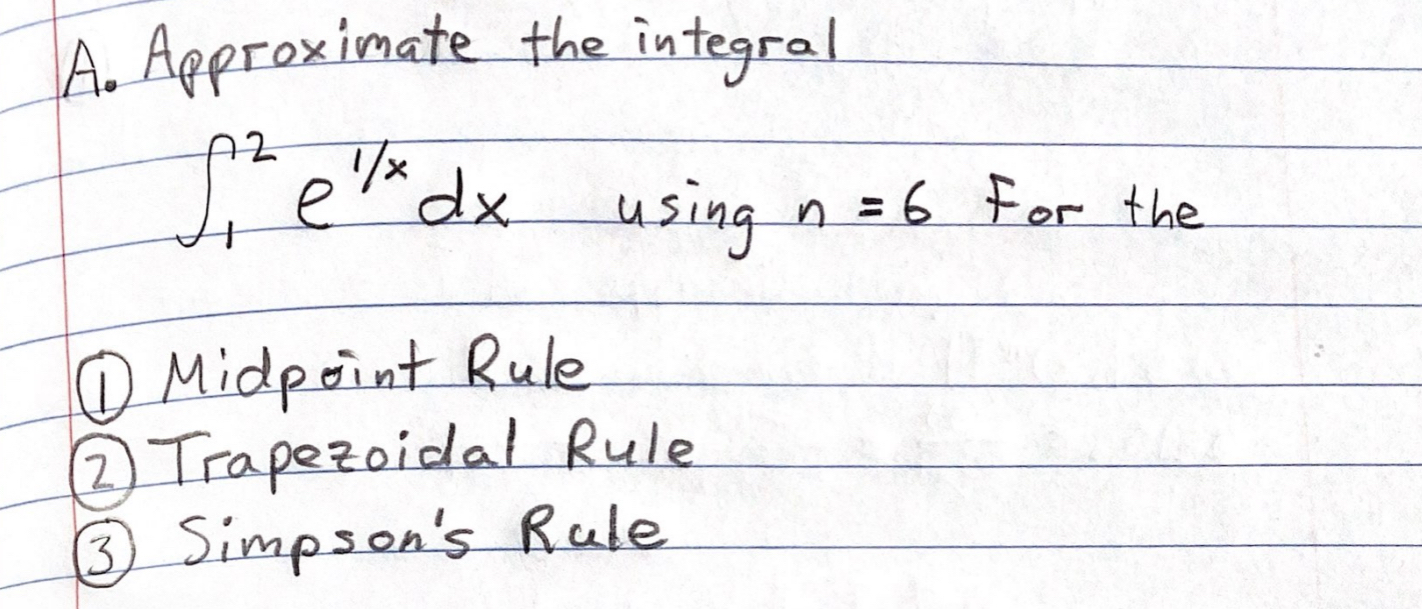 A. Approximate the integral
∫₁² e^(1/x) dx using n = 6 For the
① Midpoint Rule
② Trapezoidal Rule
③ Simpson's Rule